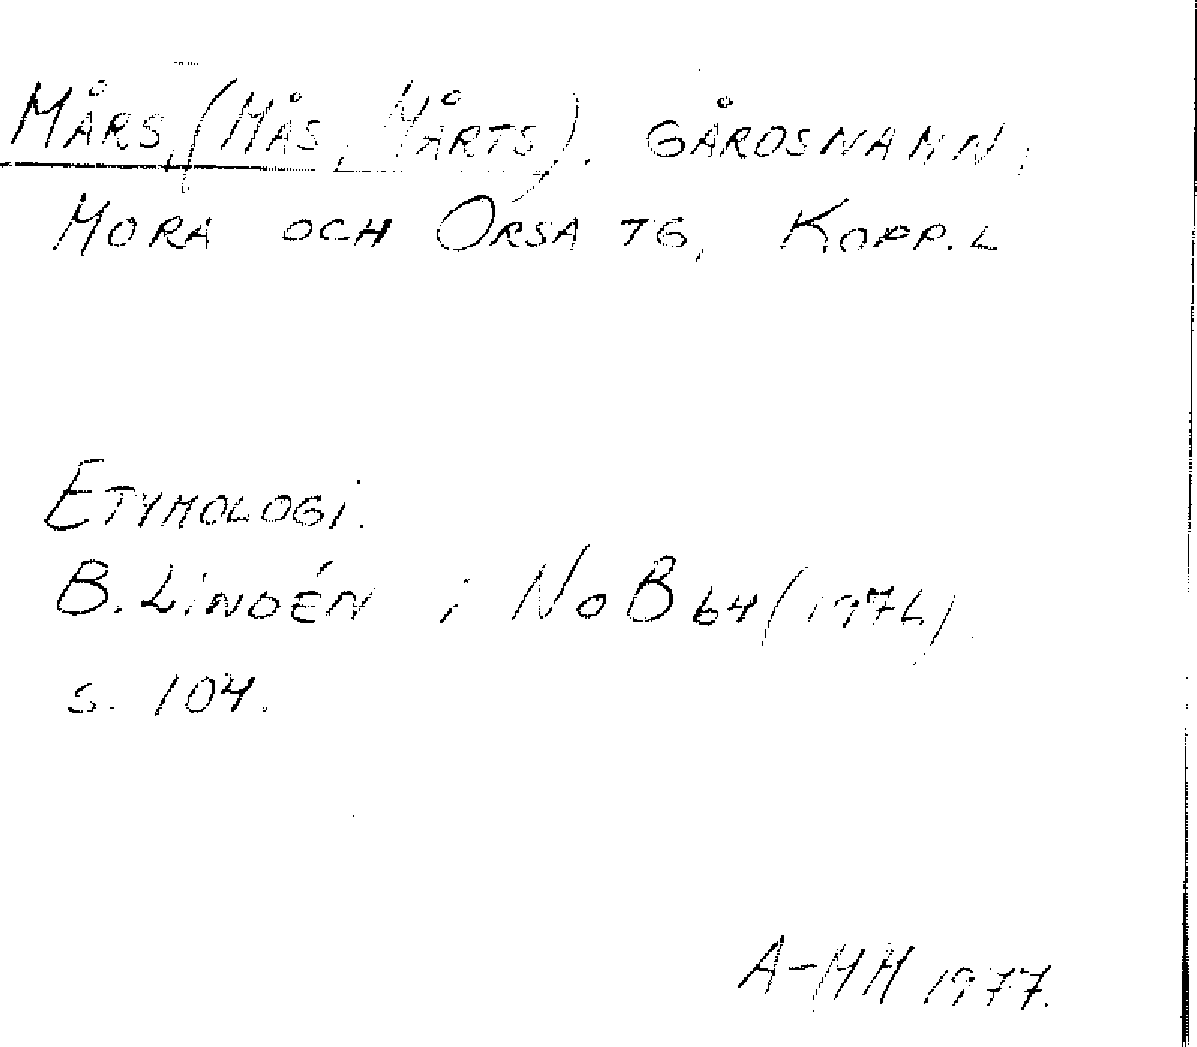 MÅRS, (MÅS, MÅRTS). GÅRDSNAMN,
MORA OCH ORSA TG, KOPP. L
ETYMOLOGI.
B. LINDÉN i NoB 64 (1976)
s. 104.
A-MH 1977.